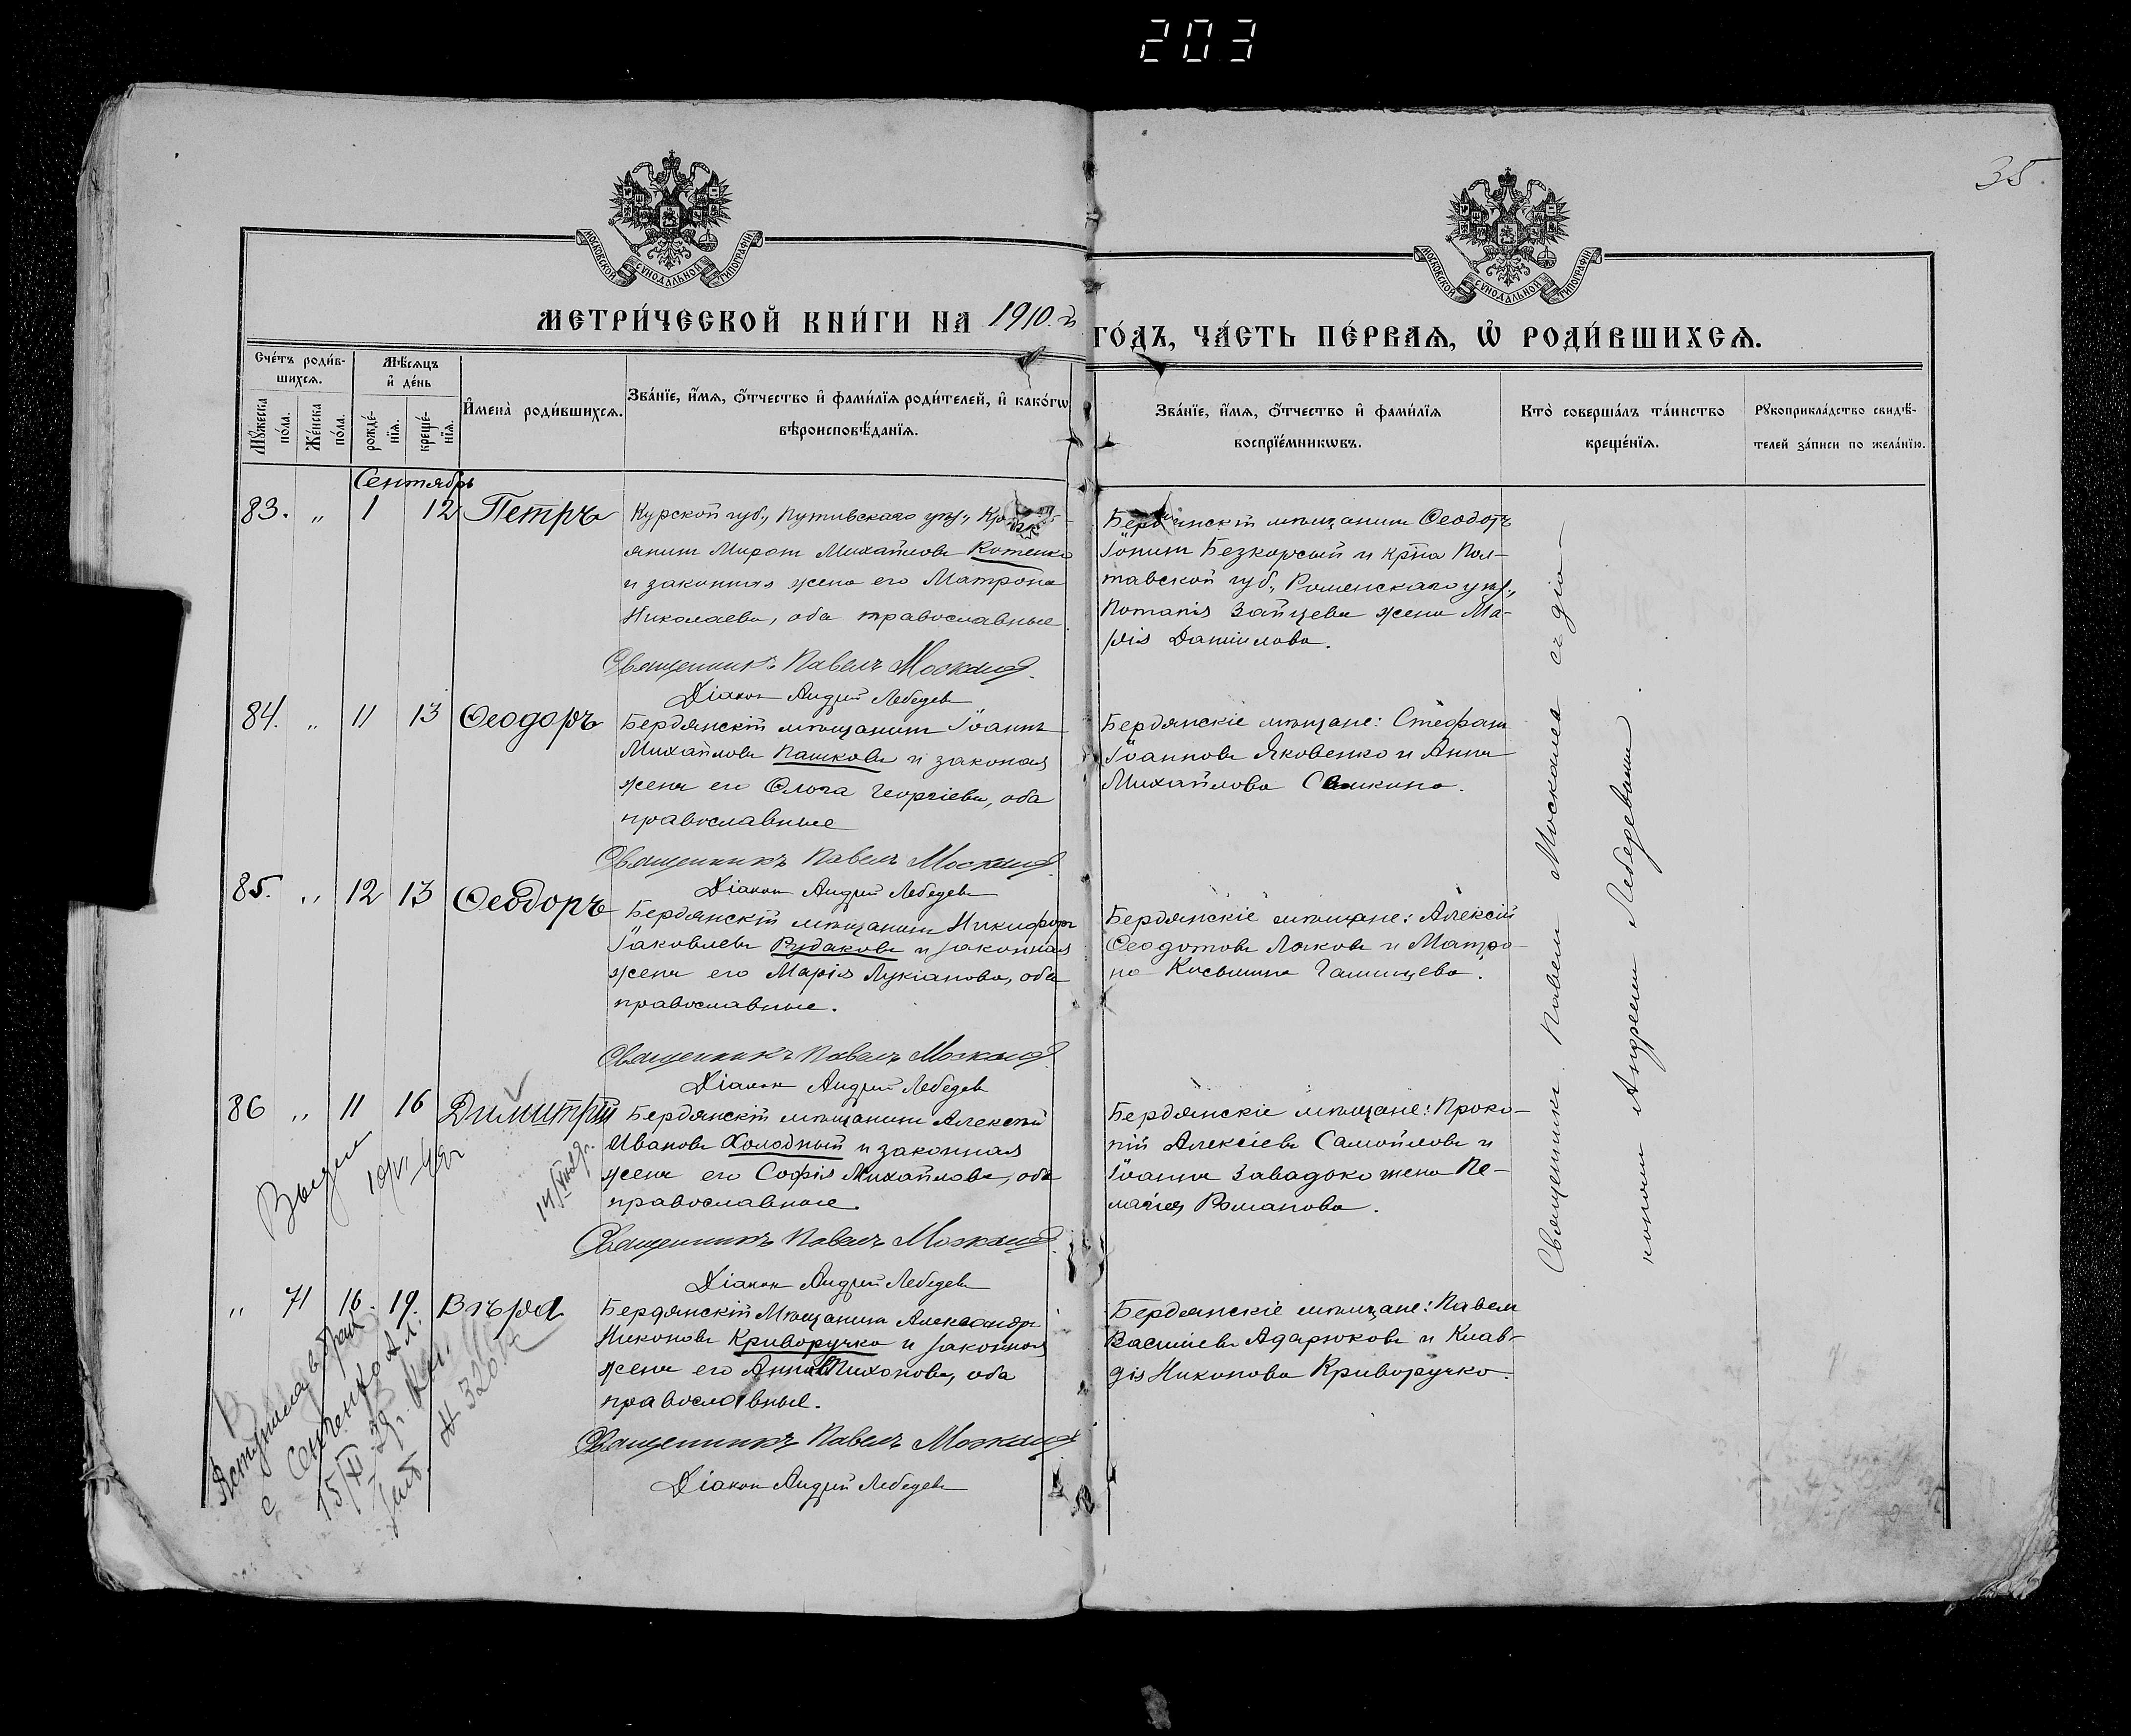 203
35.
МОСКОВСКОЙ СУНОДАЛЬНОЙ ТИПОГРАФІИ
МОСКОВСКОЙ СУНОДАЛЬНОЙ ТИПОГРАФІИ
МЕТРИ́ЧЕСКОЙ КНИ́ГИ НА 1910.й ГО́ДЪ, ЧА́СТЬ ПЕ́РВАѦ, Ѽ РОДИ́ВШИХСѦ.
Сче́тъ роди́в-
шихсѧ.
Мꙋ́жеска по́ла.
Же́нска по́ла.
Мѣ́сѧцъ
и҆ де́нь
рожде́-
нїѧ.
креще́-
нїѧ.
И҆мена̀ роди́вшихсѧ.
Зва́нїе, и҆́мѧ, ѻ҆́тчество и҆ фами́лїѧ роди́телей, и҆ како́гѡ
вѣроисповѣ́данїѧ.
Зва́нїе, и҆́мѧ, ѻ҆́тчество и҆ фами́лїѧ
воспрїе́мникѡвъ.
Кто̀ соверша́лъ та́инство
креще́нїѧ.
Рꙋкоприкла́дство свидѣ́-
телей за́писи по жела́нїю.
Сентябрь
83. „ 1 12 Петръ
Курской губ., Путивскаго уѣз.,
янинъ Миронъ Михайловъ Котенко
и законная жена его Матрона
Николаева, оба православные.
Священникъ Павелъ Москалев
Діакон Андрей Лебедев
Бердянскій мѣщанинъ Ѳеодотъ
Безкорсый и кр̃на Пол-
тавской губ., Роменскаго уѣз.,
Потапія Зайцева жена Ма-
рія Даніилова.
84. „ 11 13 Ѳеодоръ
Бердянскій мѣщанинъ Іоаннъ
Михайловъ Пашковъ и законая
жена его Ольга Георгіева, оба
православные
Священникъ Павелъ Москалев
Діакон Андрей Лебедев
Бердянскіе мѣщане: Стефанъ
Іоанновъ Яковенко и Анна
Михайлова
85. „ 12 13 Ѳеодоръ
Бердянскій мѣщанинъ Никифоръ
Іаковлевъ Рудаковъ и законная
жена его Марія Лукіанова, оба
православные.
Священникъ Павелъ Москалев
Діакон Андрей Лебедев
Бердянскіе мѣщане: Алексій
Ѳеодотовъ и Матро-
на Косьмина
86 „ 11 16 Димитрій
Бердянскій мѣщанинъ Алексѣй
Ивановъ Холодный и законная
жена его Софія Михайлова, оба
православные.
Священникъ Павелъ Москалев
Діакон Андрей Лебедев
Бердянскіе мѣщане: Проко-
пій Алексіевъ Самойловъ и
Іоанна жена Пе-
лагія Романова.
„ 71 16. 19. Вѣра
Бердянскій Мѣщанинъ Александръ
Никоновъ Криворучко и законная
жена его Анна Тихонова, оба
православные.
Священникъ Павелъ Москалев
Діакон Андрей Лебедев
Бердянскіе мѣщане: Павелъ
Васильевъ Адарюковъ и Клав-
дія Никонова Криворучко.
Священникъ Павелъ Москалевъ съ діа-
кономъ Андреемъ Лебедевымъ.
Вступила в брак
с Сенченко Ал.
15/XI 29г.